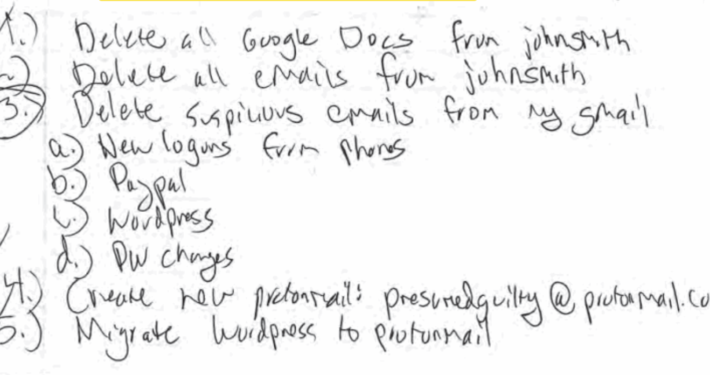 1.) Delete all Google Docs from johnsmith
2.) Delete all emails from johnsmith
3.) Delete suspicious emails from my gmail
a.) New logins from phones
b.) Paypal
c.) Wordpress
d.) PW changes
4.) Create new protonmail: presumedguilty@protonmail.co
5.) Migrate Wordpress to protonmail